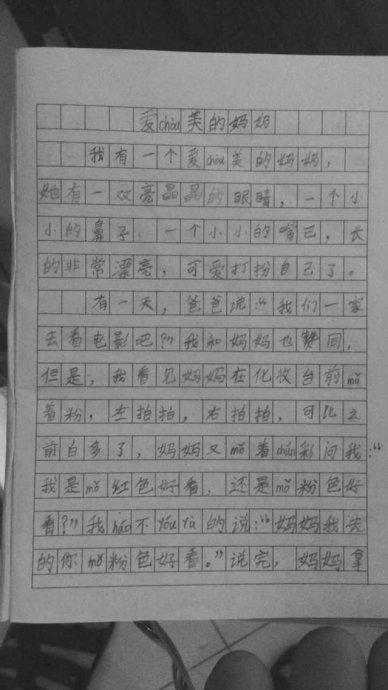 爱chòu美的妈妈
我有一个爱chòu美的妈妈，
她有一双亮晶晶的眼睛，一个小
小的鼻子，一个小小的嘴巴，长
的非常漂亮，可爱打扮自己了。
有一天，爸爸说：“我们一家
去看电影吧？”我和妈妈也赞同，
但是，我看见妈妈在化妆台前mǒ
着粉，左拍拍，右拍拍，可比之
前白多了，妈妈又mǒ着chún彩问我：“
我是mǒ红色好看，还是mǒ粉色好
看？”我háo不yóu yù的说：“妈妈我
的你mǒ粉色好看。”说完，妈妈拿